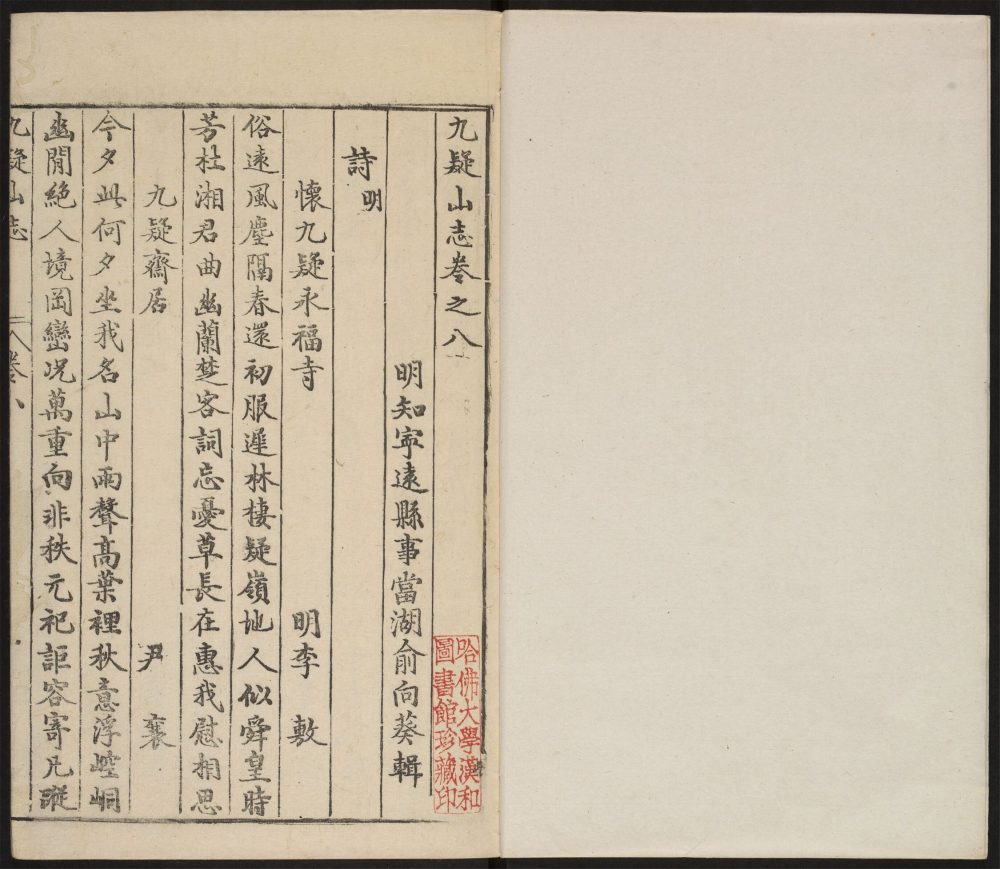 九疑山志卷之八
明知寧遠縣事當湖俞向葵輯
詩明
懷九疑永福寺 明李敷
俗遠風塵隔春還初服遲林棲疑嶺地人似舜皇時
芳杜湘君曲幽蘭楚客詞忘憂草長在惠我慰相思
九疑齋居 尹襄
今夕此何夕坐我名山中雨聲高葉裡秋意浮崆峒
幽閒絕人境岡巒况萬重向非秩元祀詎容寄凡蹤
九疑山志 卷八
哈佛大學漢和
圖書館珍藏印